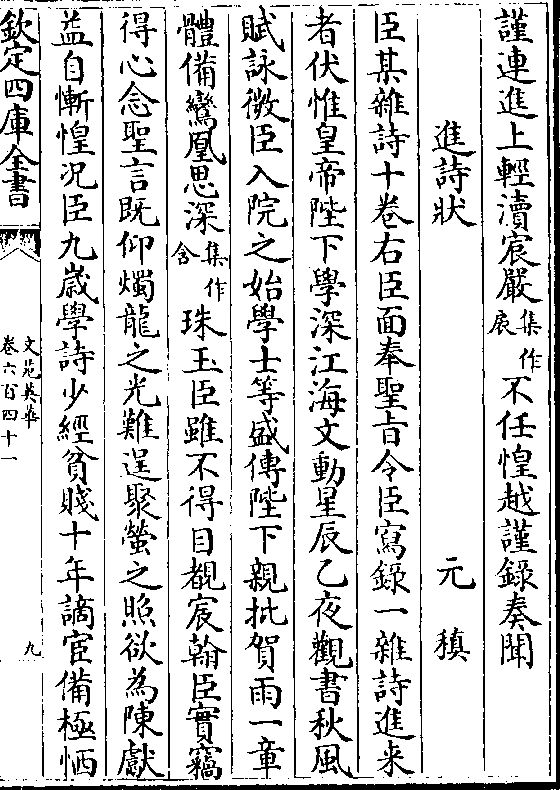 謹連進上輕瀆宸嚴集作扆不任惶越謹錄奏聞
進詩狀 元稹
臣某雜詩十卷右臣面奉聖旨令臣寫錄一雜詩進来
者伏惟皇帝陛下學深江海文動星辰乙夜觀書秋風
賦詠微臣入院之始學士等盛傳陛下親批賀雨一章
體備鸞凰思深集作含珠玉臣雖不得目覩宸翰臣實竊
得心念聖言既仰燭龍之光難逞聚螢之照欲為陳獻
益自慚惶况臣九歲學詩少經貧賤十年謫宦備極恓
欽定四庫全書
文苑英華
卷六百四十一
九